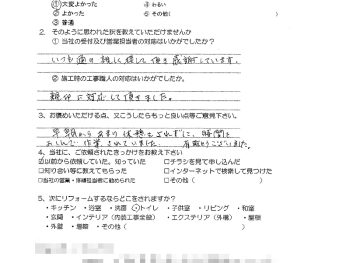 ①大変よかった ④わるい
②よかった ⑤その他( )
③普通
2. そのように思われた訳を教えていただけませんか
① 当社の受付及び営業担当者の対応はいかがでしたか?
いつも 親しく 接して頂き感謝しています。
② 施工時の工事職人の対応はいかがでしたか?
親切に対応して頂きました。
3. お褒めいただける点、又こうしたらもっと良い点等ご意見下さい。
早朝から 休憩もされずに、時間を
おしんで 作業 されていました。 有難うございました。
4. 当社に、ご依頼されたきっかけをお教え下さい
☑以前から依頼していた。知っていた □チラシを見て申し込んだ
□知り合い等に教えてもらった □インターネットで検索して見つけた
□当社の営業・現場担当者に勧められた □その他( )
5. 次にリフォームするならどこをされますか?
・キッチン ・浴室 ・洗面 ・トイレ ・子供室 ・リビング ・和室
・玄関 ・インテリア(内装工事全般) ・エクステリア(外構) ・屋根
・外壁 ・増築 ・その他( )